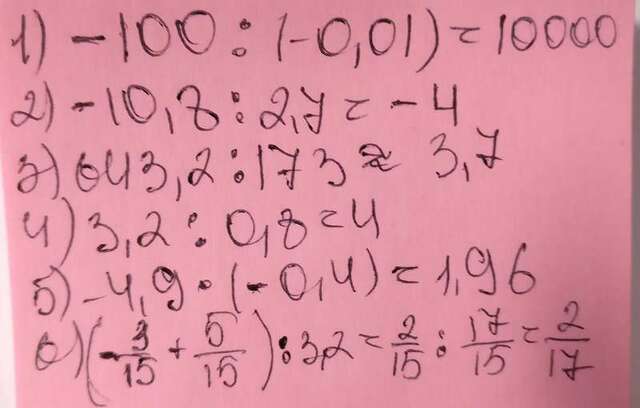 1) -100 : (-0,01) = 10000
2) -10,8 : 2,7 = -4
3) 643,2 : 173 ≈ 3,7
4) 3,2 : 0,8 = 4
5) -4,9 · (-0,4) = 1,96
6) (-3/15 + 5/15) : 3,2 = 2/15 : 17/15 = 2/17